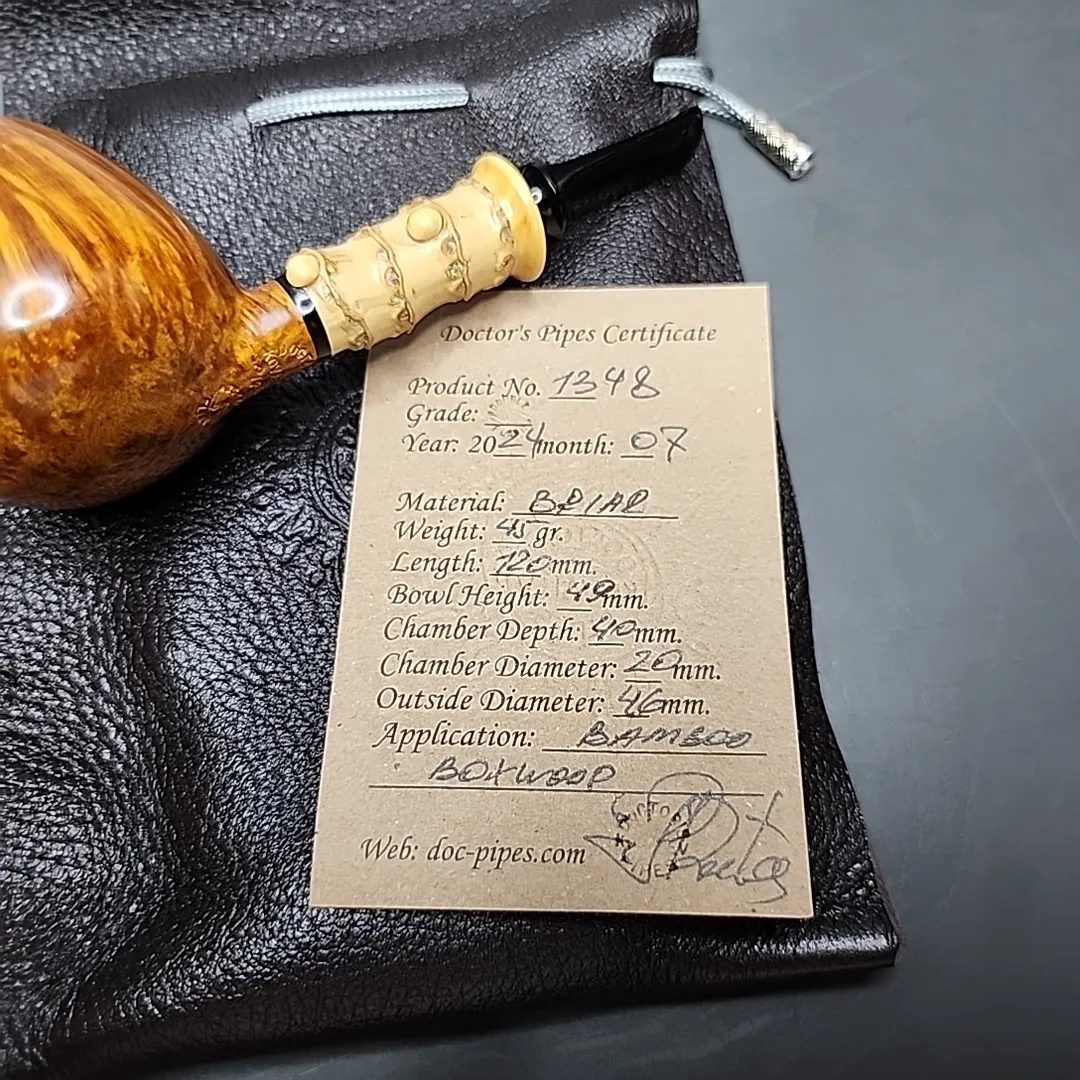 Doctor's Pipes Certificate
Product No. 1348
Grade:
Year: 2024 month: 07
Material: BRIAR
Weight: 45 gr.
Length: 120 mm.
Bowl Height: 49 mm.
Chamber Depth: 40 mm.
Chamber Diameter: 20 mm.
Outside Diameter: 46 mm.
Application: BAMBOO
BOXWOOD
Web: doc-pipes.com